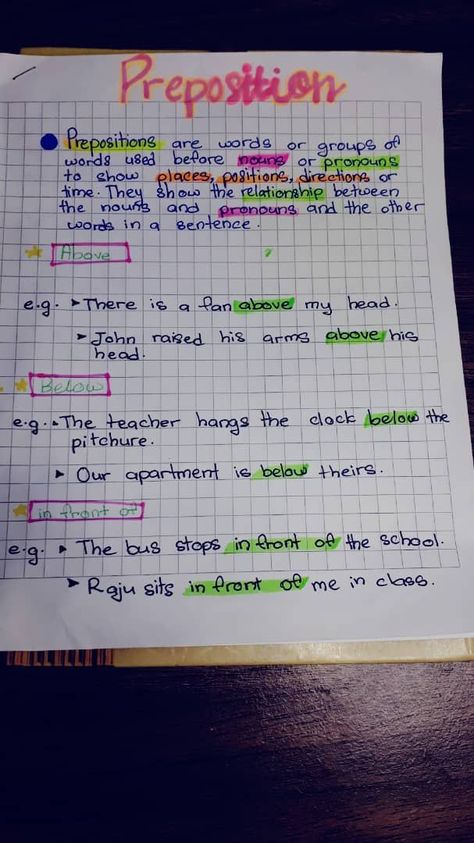 Preposition
Prepositions are words or groups of
words used before nouns or pronouns
to show places, positions, directions or
time. They show the relationship between
the nouns and pronouns and the other
words in a sentence.
Above
e.g. ➤ There is a fan above my head.
➤ John raised his arms above his
head.
Below
e.g. ➤ The teacher hangs the clock below the
pitchure.
➤ Our apartment is below theirs.
in front of
e.g. ➤ The bus stops in front of the school.
➤ Raju sits in front of me in class.